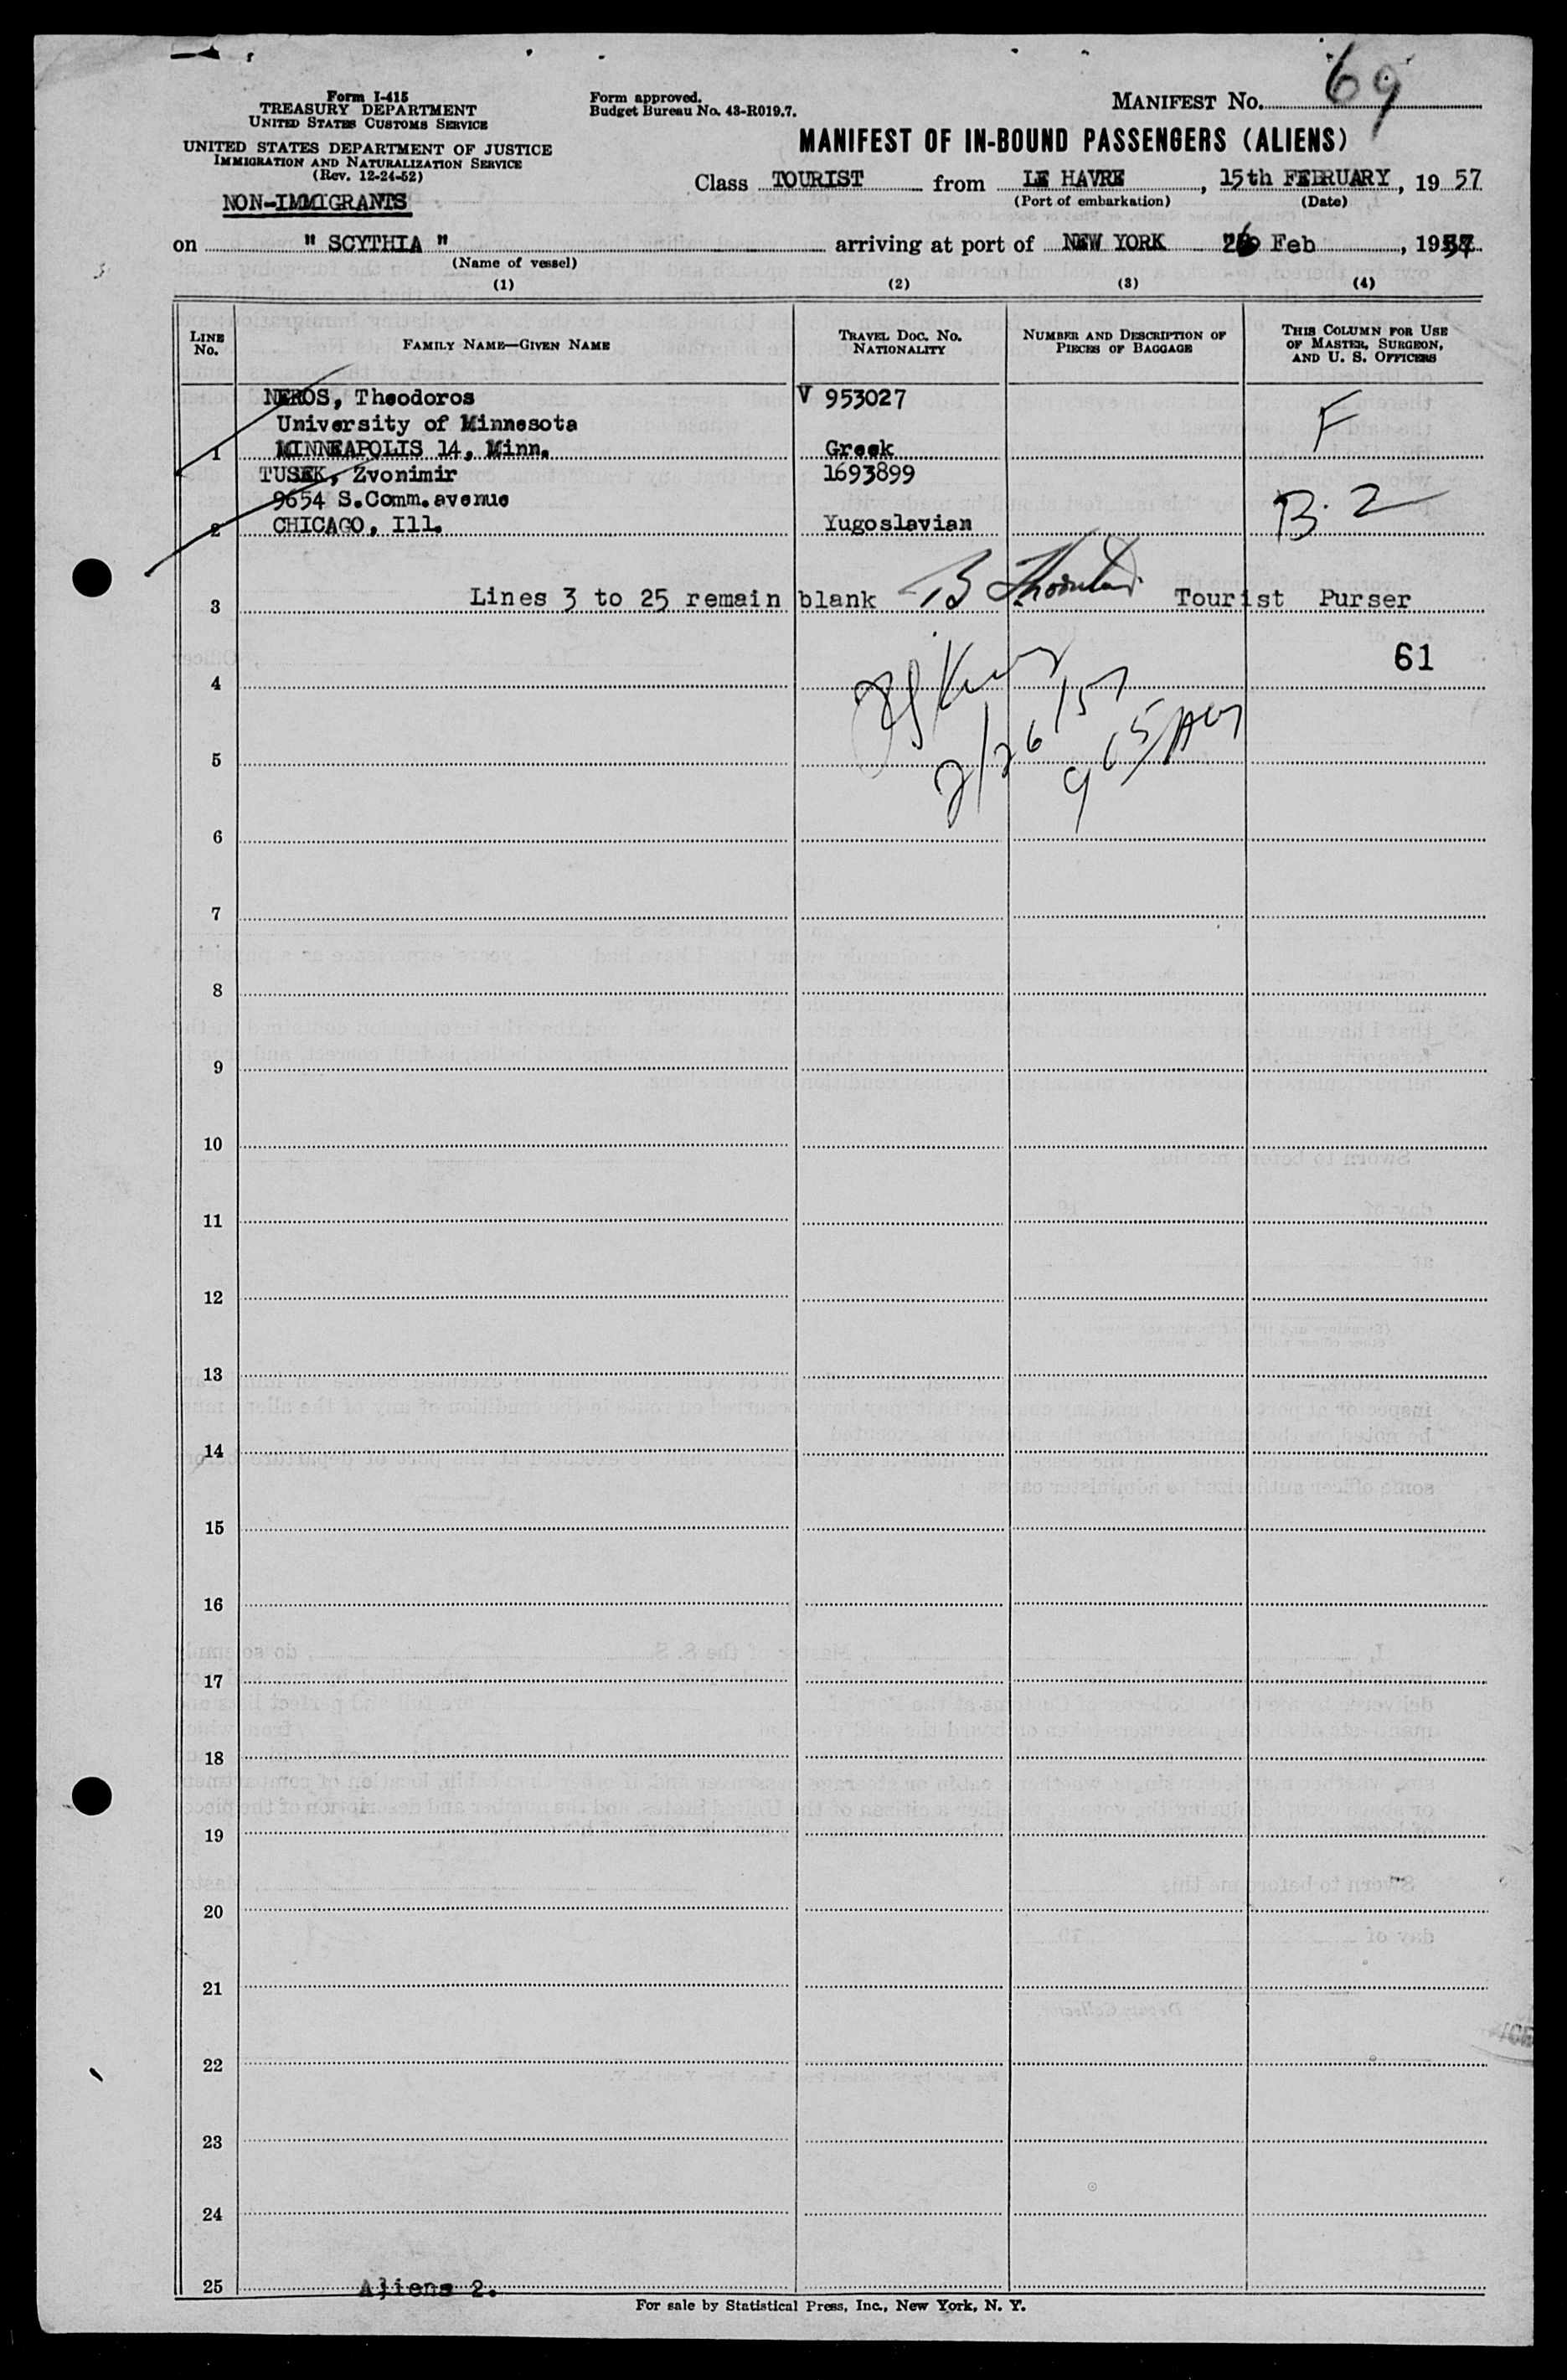 69
Form I-415
TREASURY DEPARTMENT
UNITED STATES CUSTOMS SERVICE
UNITED STATES DEPARTMENT OF JUSTICE
IMMIGRATION AND NATURALIZATION SERVICE
(Rev. 12-24-52)
NON-IMMIGRANTS
Form approved.
Budget Bureau No. 43-R019.7.
MANIFEST No.
MANIFEST OF IN-BOUND PASSENGERS (ALIENS)
Class TOURIST from LE HAVRE, 15th FEBRUARY, 19 57
(Port of embarkation) (Date)
on " SCYTHIA " arriving at port of NEW YORK 26 Feb, 1957
(Name of vessel)
(1) (2) (3) (4)
LINE No. FAMILY NAME—GIVEN NAME TRAVEL DOC. NO. NATIONALITY NUMBER AND DESCRIPTION OF PIECES OF BAGGAGE THIS COLUMN FOR USE OF MASTER, SURGEON, AND U. S. OFFICERS
NEROS, Theodoros V 953027
University of Minnesota F
1 MINNEAPOLIS 14, Minn. Greek
TUSEK, Zvonimir 1693899
9654 S.Comm.avenue B-2
2 CHICAGO, Ill. Yugoslavian
3 Lines 3 to 25 remain blank Tourist Purser
61
4
2/26/57
5
6
7
8
9
10
11
12
13
14
15
16
17
18
19
20
21
22
23
24
25 Aliens 2.
For sale by Statistical Press, Inc., New York, N. Y.